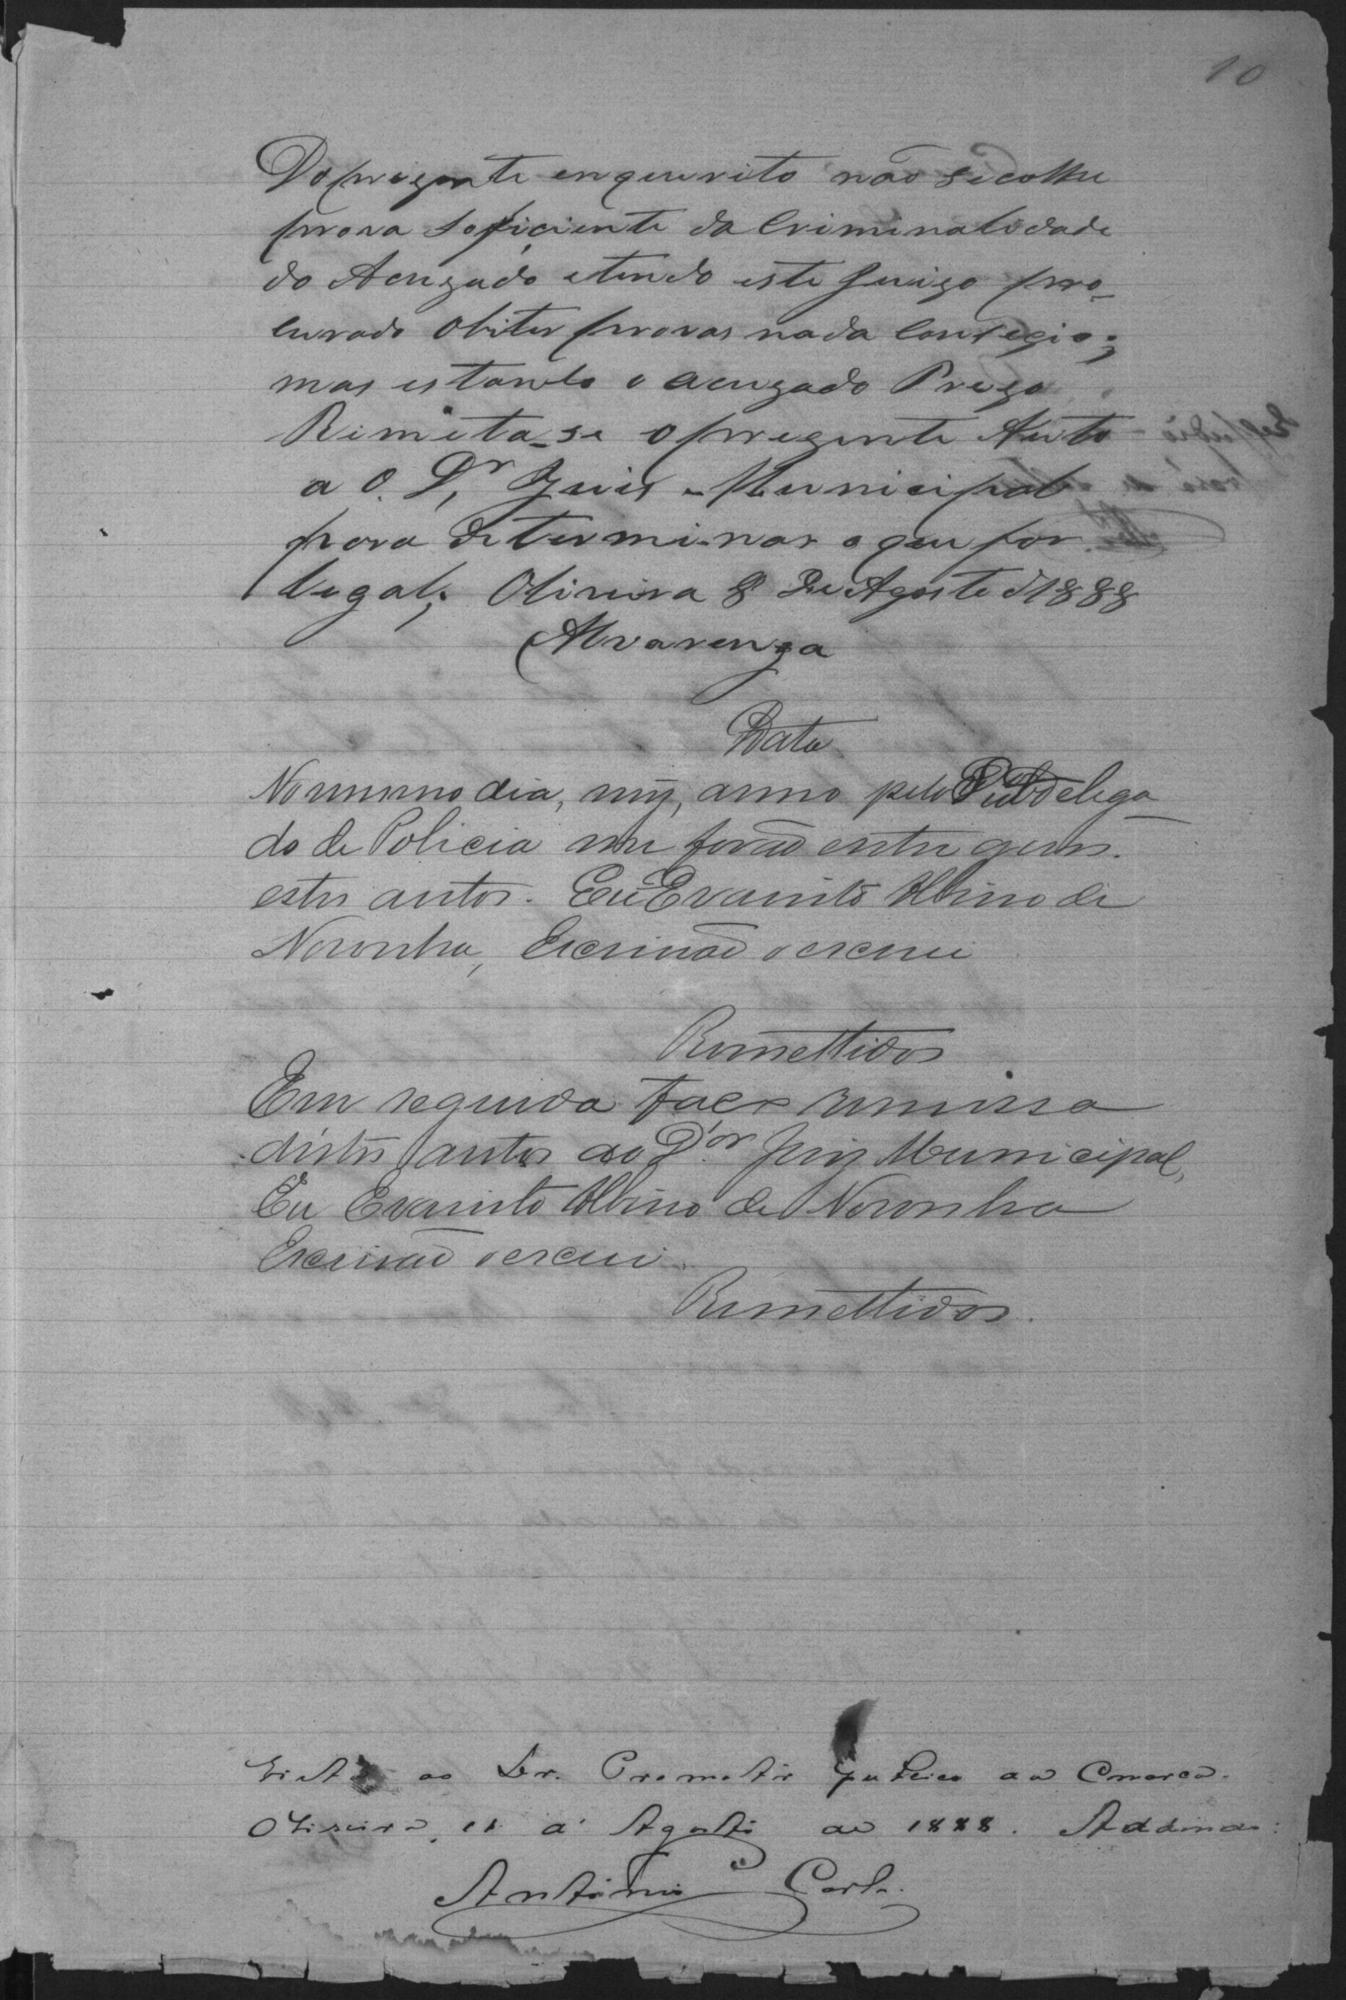 10
Do prezente enquerito não se colhe
prova soficiente da Criminalidade
do Acuzado e tendo este Juizo pro-
curado obiter provas nada Consegio;
mas estando o acuzado Prezo
Rimeta-se o prezente Auto
a O. Dr. Juis Municipal
para determinar o que for
legal; Oliveira 8 de Agosto d 1888
Alvarenga
Data
No mesmo dia, mez, anno pelo Subdelega
do de Policia me forão entregues
estes autos. Eu Evaristo Albino de
Noronha, Escrivão o escrevi
Remettidos
Em seguida faço remessa
distes autos ao D.or Juiz Municipal,
Eu Evaristo Albino de Noronha
Escrivão o escrevi.
Remettidos.
Vista ao Dr. Promotor Publico da Comarca.
Oliveira, 11 d' Agosto de 1888.
Antônio